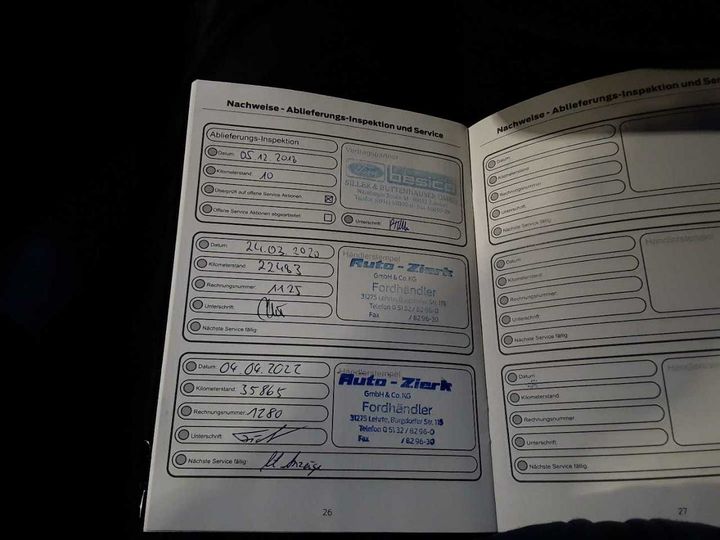 Nachweise - Ablieferungs-Inspektion und Service
Ablieferungs-Inspektion
Datum: 05.12.2018
Kilometerstand: 10
Überprüft auf offene Service Aktionen
Offene Service Aktionen abgearbeitet
Vertragspartner
Ford
besico
Unterschrift:
Datum: 24.03.2020
Kilometerstand: 22483
Rechnungsnummer: 1125
Unterschrift:
Nächste Service fällig:
Händlerstempel
Auto - Zierk
GmbH & Co. KG
Fordhändler
31275 Lehrte, Burgdorfer Str. 115
Telefon 0 51 32 / 82 96-0
Fax / 82 96-30
Datum: 04.04.2022
Kilometerstand: 35865
Rechnungsnummer: 1280
Unterschrift:
Nächste Service fällig: lt Anzeige
Händlerstempel
Auto - Zierk
GmbH & Co. KG
Fordhändler
31275 Lehrte, Burgdorfer Str. 115
Telefon 0 51 32 / 82 96-0
Fax / 82 96-30
26
Nachweise - Ablieferungs-Inspektion und
Datum:
Kilometerstand:
Rechnungsnummer:
Unterschrift:
Nächste Service fällig:
Datum:
Kilometerstand:
Rechnungsnummer:
Unterschrift:
Nächste Service fällig:
Händlerstempel
Datum:
Kilometerstand:
Rechnungsnummer:
Unterschrift:
Nächste Service fällig:
27